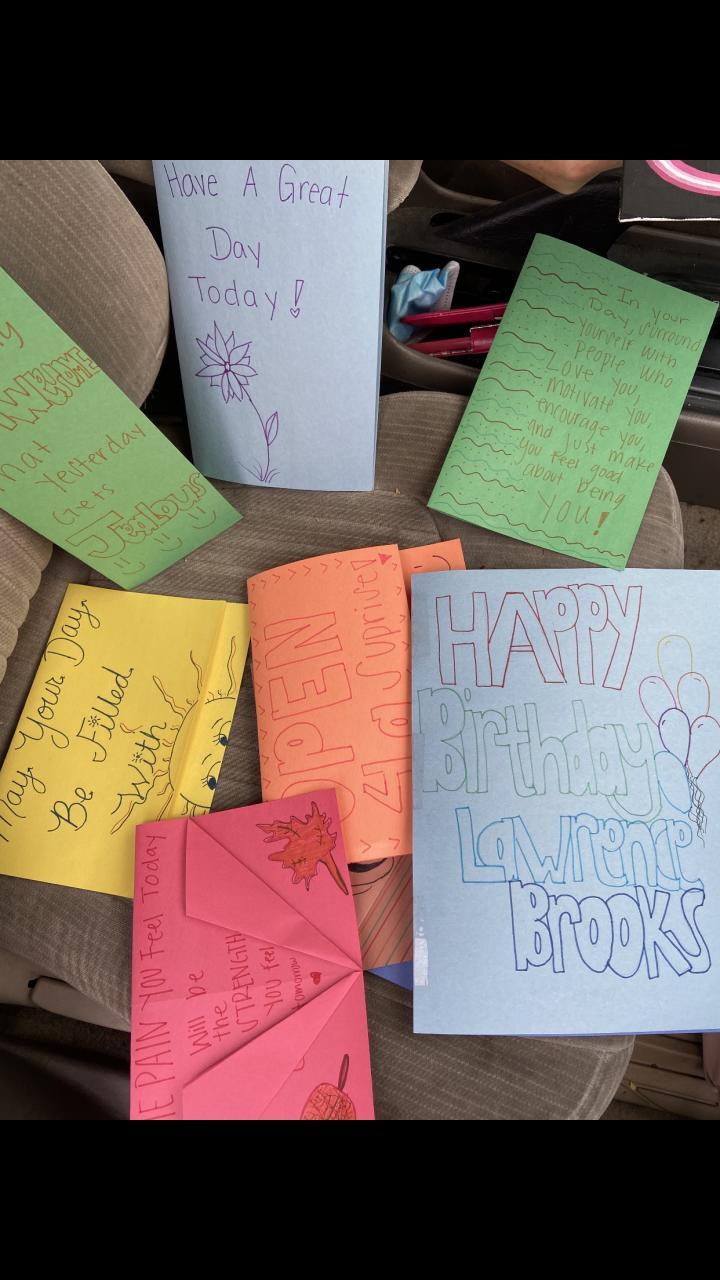 Have A Great
Day
Today!
AWESOME
that
Yesterday
Gets
Jealous
In your
Day, Surround
Yourself with
People who
Love you,
motivate you,
encourage you,
and just make
you feel good
about being
YOU!
May Your Day
Be Filled
With
OPEN
4 a Suprise!
HAPPY
Birthday
Lawrence
Brooks
PAIN YOU Feel Today
Will be
the
STRENGTH
You feel
tomorrow